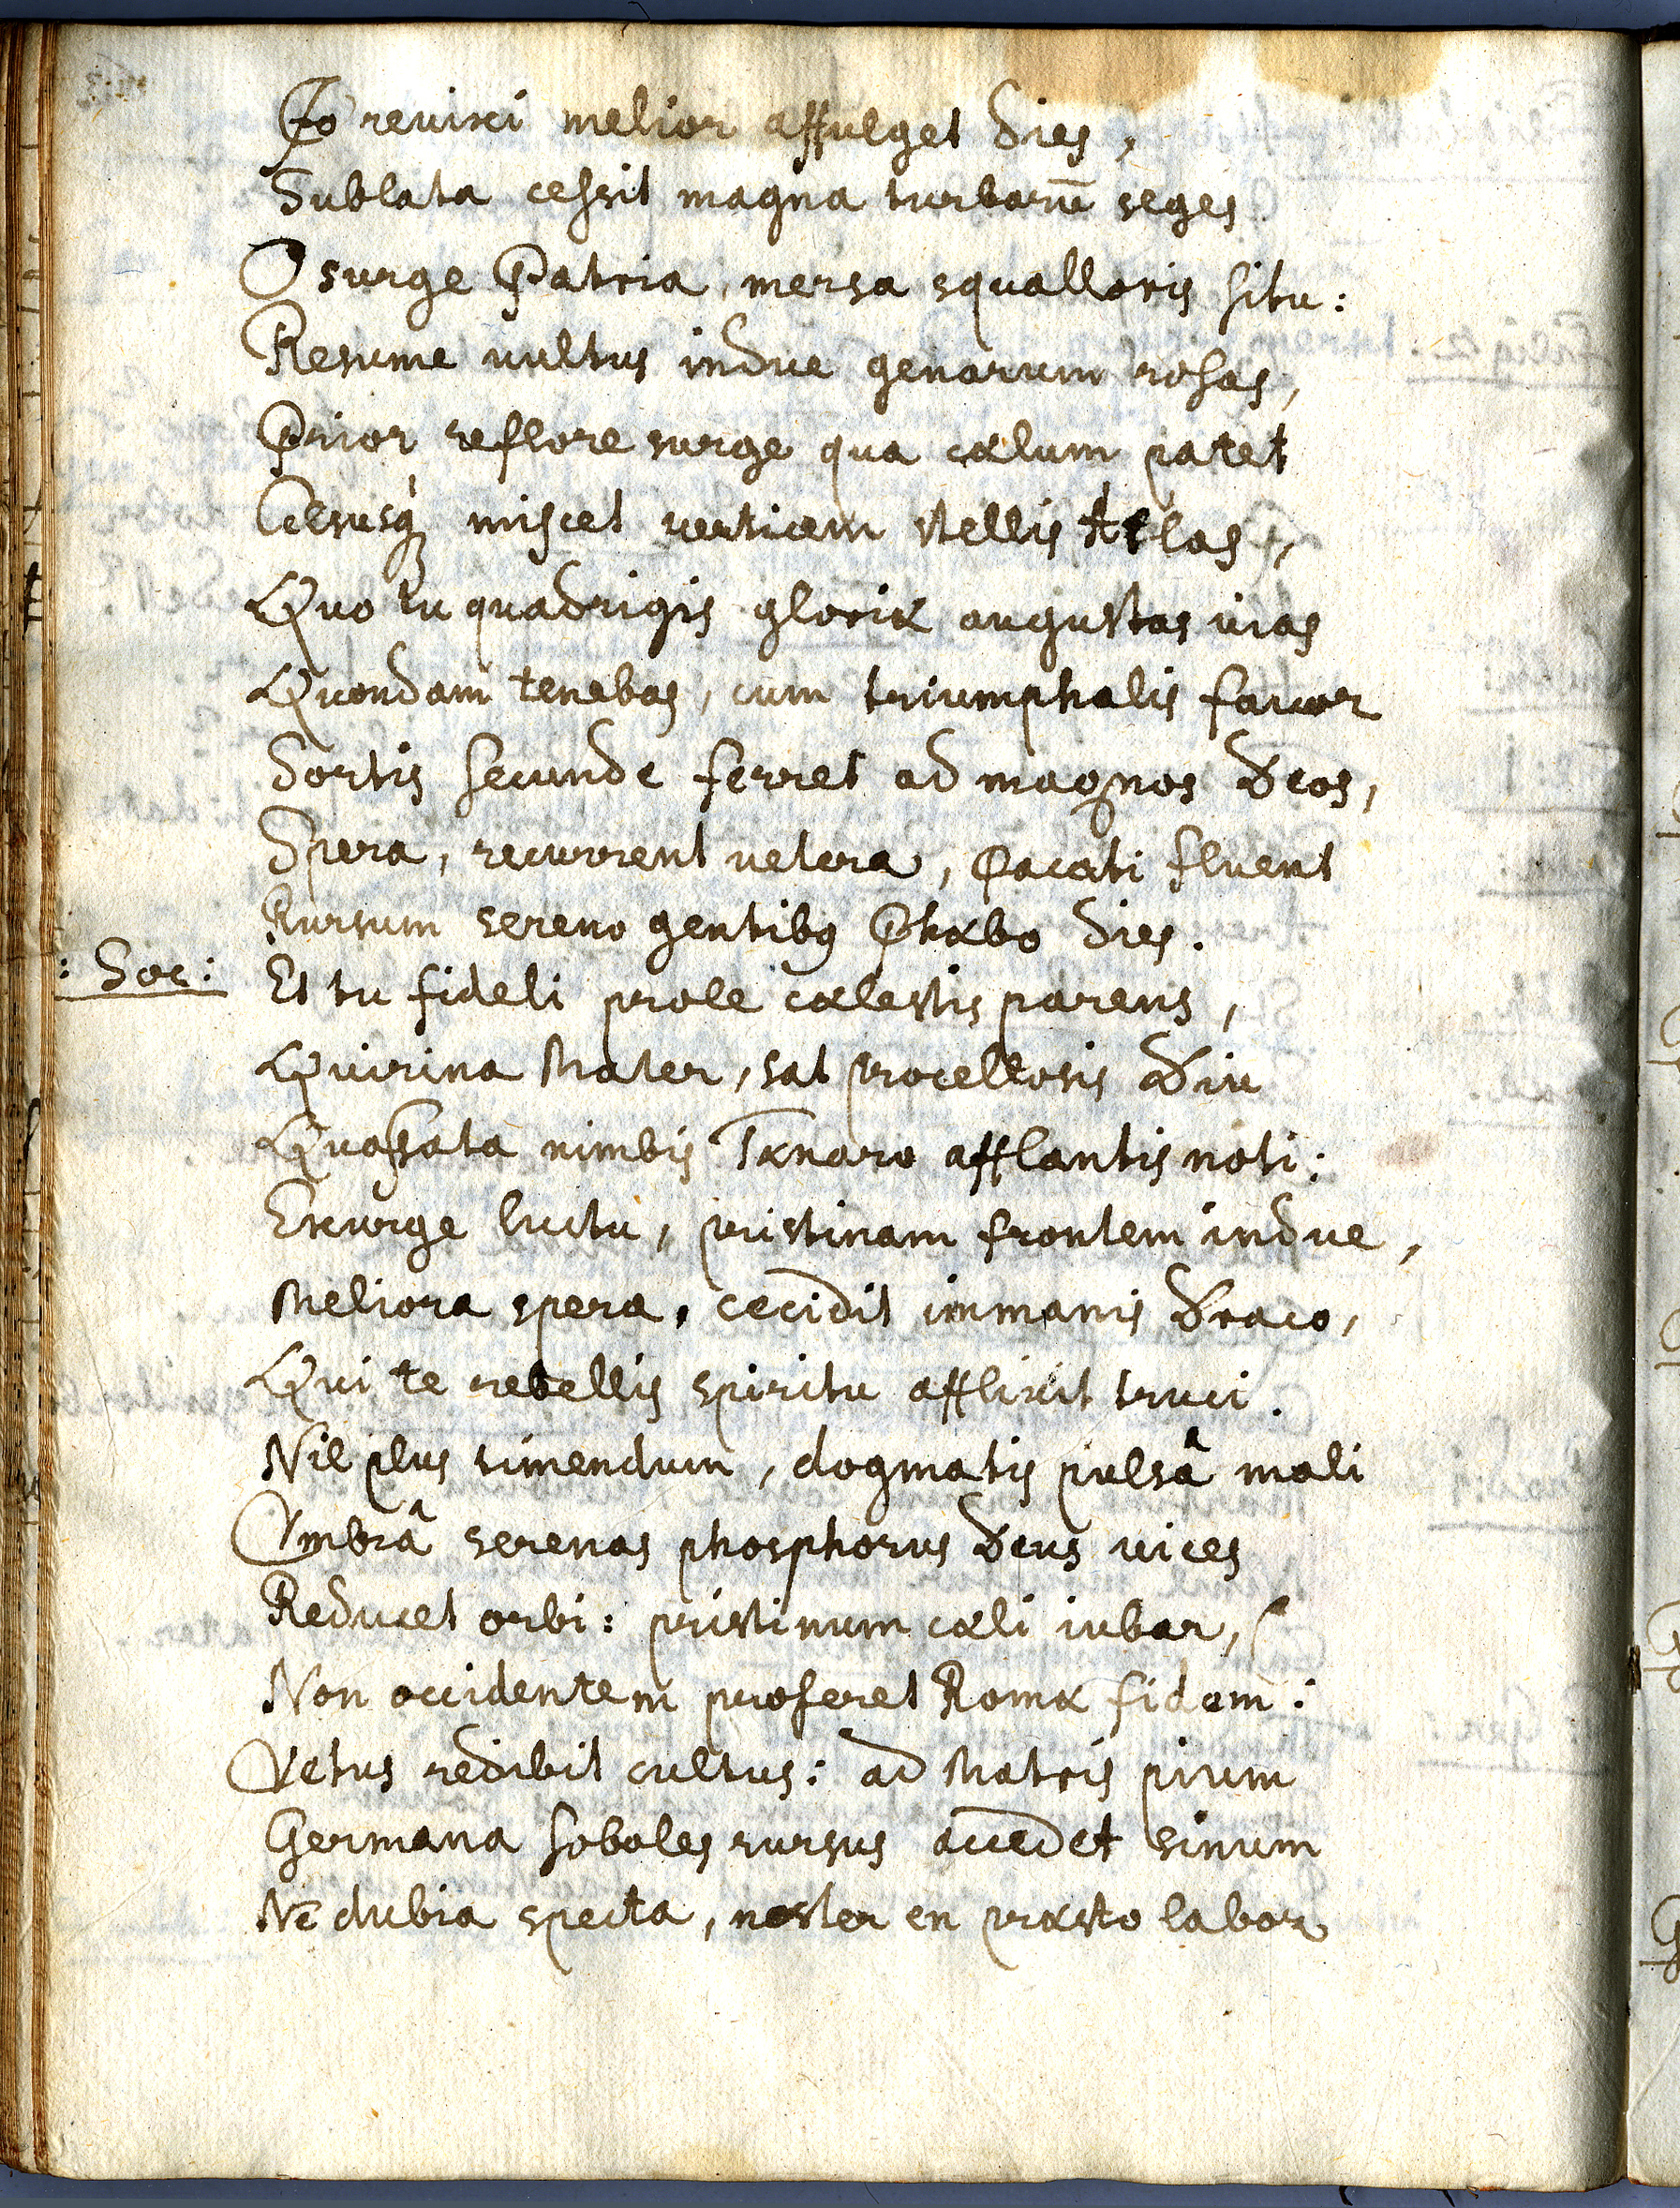 Io revixi melior affulget dies,
Sublata cessit magna turbarū seges
O surge Patria, mersa squalloris situ:
Resume vultus indue genarum rosas,
Prior reflore surge qua cælum patet
Celsusq́ miscet verticem stellis Atlas,
Quo tu quadrigis gloriæ augustas vias
Quondam tenebas, cum triumphalis favor
Sortis secunde ferret ad magnos Deos,
Spera, recurrent vetera, Pacati fluent
Rursum sereno gentibꝫ Phæbo dies.
: Soc: Et tu fideli prole cælestis parens,
Quirina Mater, sat procellosis Diu
Quassata nimbis Tænaro afflantis noti:
Exurge luctu, pristinam frontem indue,
Meliora spera, cecidit immanis Draco,
Qui te rebellis spiritu afflixit truci.
Nil plus timendum, dogmatis pulsâ mali
Vmbrâ serenas phosphorus Deus vices
Reducet orbi: pristinum cæli iubar,
Non occidentem proferet Romæ fidem:
Vetus redibit cultus: ad Matris pium
Germana soboles rursus accedet sinum
Nē dubia specta, noster en præsto labor